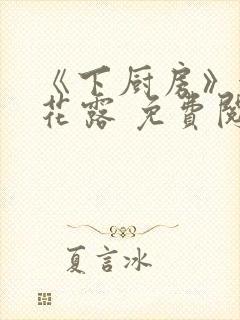 《下厨房》
花露 免費閱
夏言冰